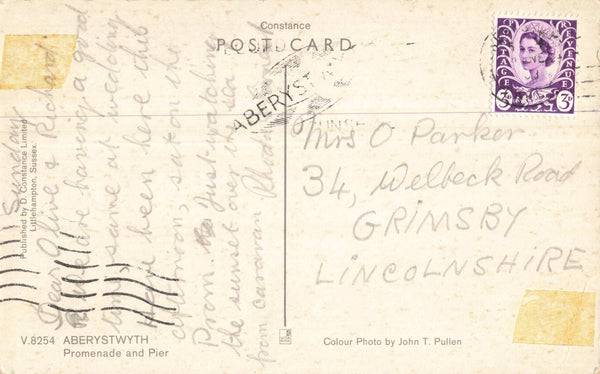 Constance
POSTCARD
POSTAGE
REVENUE
3D
3D
ABERYSTWYTH
Mrs O Parker
34, Welbeck Road
GRIMSBY
LINCOLNSHIRE
Sunday
Dear Olive & Richard
are having a good
time, same at wedding
Have been here this
afternoon, sat on the
Prom. Just watching
the sunset over the sea
from caravan
Published by D. Constance Limited
Littlehampton, Sussex.
V.8254 ABERYSTWYTH
Promenade and Pier
Colour Photo by John T. Pullen